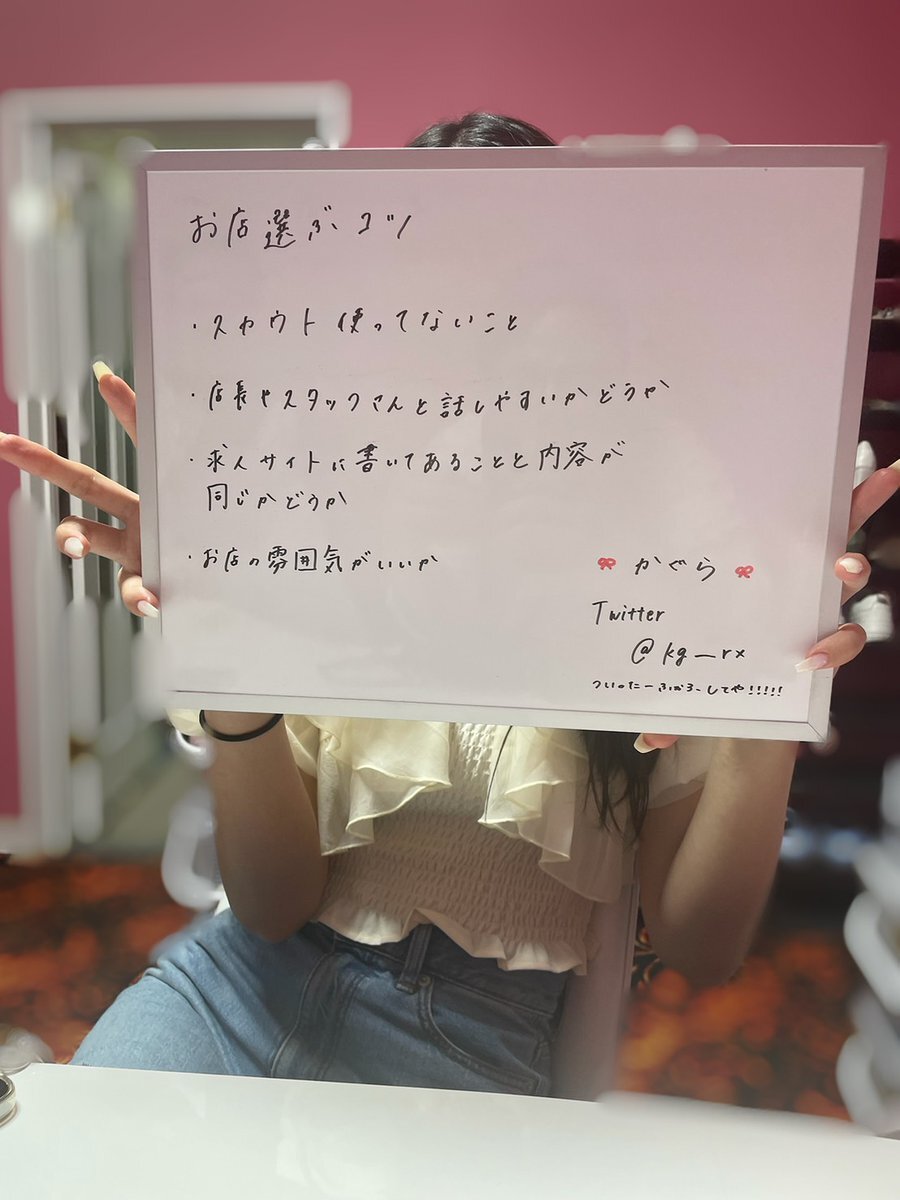 お店選ぶコツ
・スカウト使ってないこと
・店長やスタッフさんと話しやすいかどうか
・求人サイトに書いてあることと内容が
同じかどうか
・お店の雰囲気がいいか
🎀かぐら🎀
Twitter
@kg_rx
ついったーふぉろーしてや!!!!!